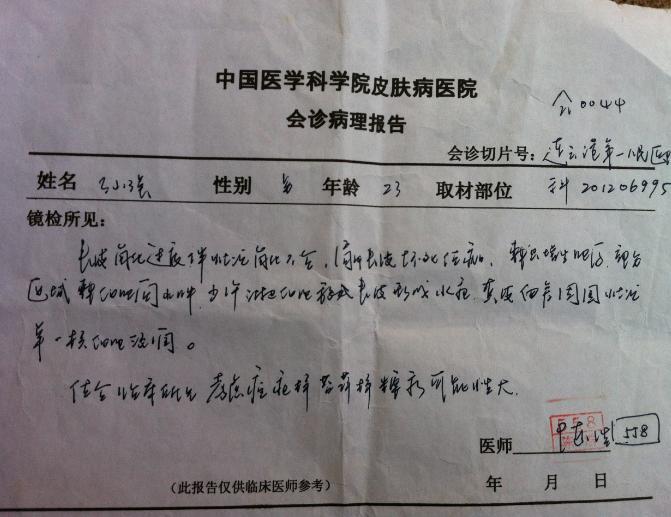 中国医学科学院皮肤病医院
会诊病理报告
会0044
会诊切片号：连云港第一人民医
姓名 性别 男 年龄 23 取材部位 科201206995
镜检所见：
表皮角化过度伴灶性角化不全，
区域棘细胞间水肿，少许淋巴细胞移入表皮形成水疱，真皮血管周围灶性
单一核细胞浸润。
结合临床所见 考虑痘疮样苔藓样糠疹可能性大.
医师 558
（此报告仅供临床医师参考） 年 月 日